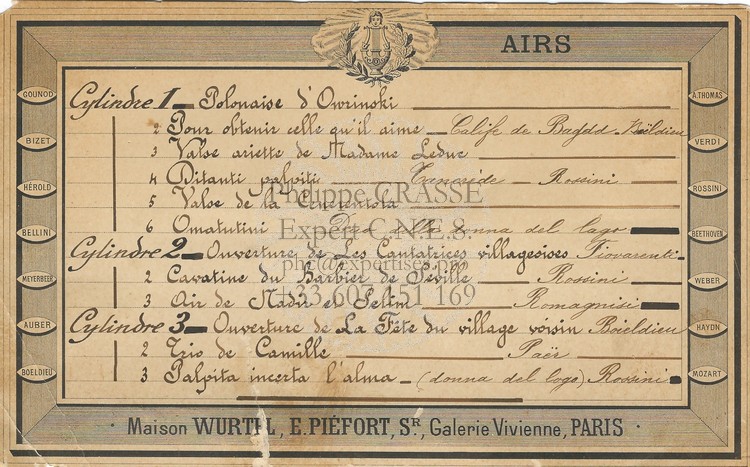 AIRS
GOUNOD
BIZET
HÉROLD
BELLINI
MEYERBEER
AUBER
BOELDIEU
Cylindre 1 — Polonaise d'Owrinski
2 Pour obtenir celle qu'il aime — Calife de Bagdd
3 Valse ariette de Madame Leduc
4 Ditanti palpiti Tancrède — Rossini
5 Valse de la Cenerentola
6 Omatutini donna del lago
Cylindre 2 — Ouverture de Les Cantatrices villageoises Fiovarenti
2 Cavatine du Barbier de Séville — Rossini
3 Air de Nadir et Selim — Romagnisi
Cylindre 3 — Ouverture de La Fête du village voisin Boieldieu
2 Trio de Camille Paër
3 Palpita incerta l'alma — (donna del logo) Rossini
A. THOMAS
VERDI
ROSSINI
BEETHOVEN
WEBER
HAYDN
MOZART
Philippe CRASSE
Expert C.N.E.S.
phc@expertises.pro
+33 607 151 169
Maison WURTEL, E. PIÉFORT, Sr, Galerie Vivienne, PARIS